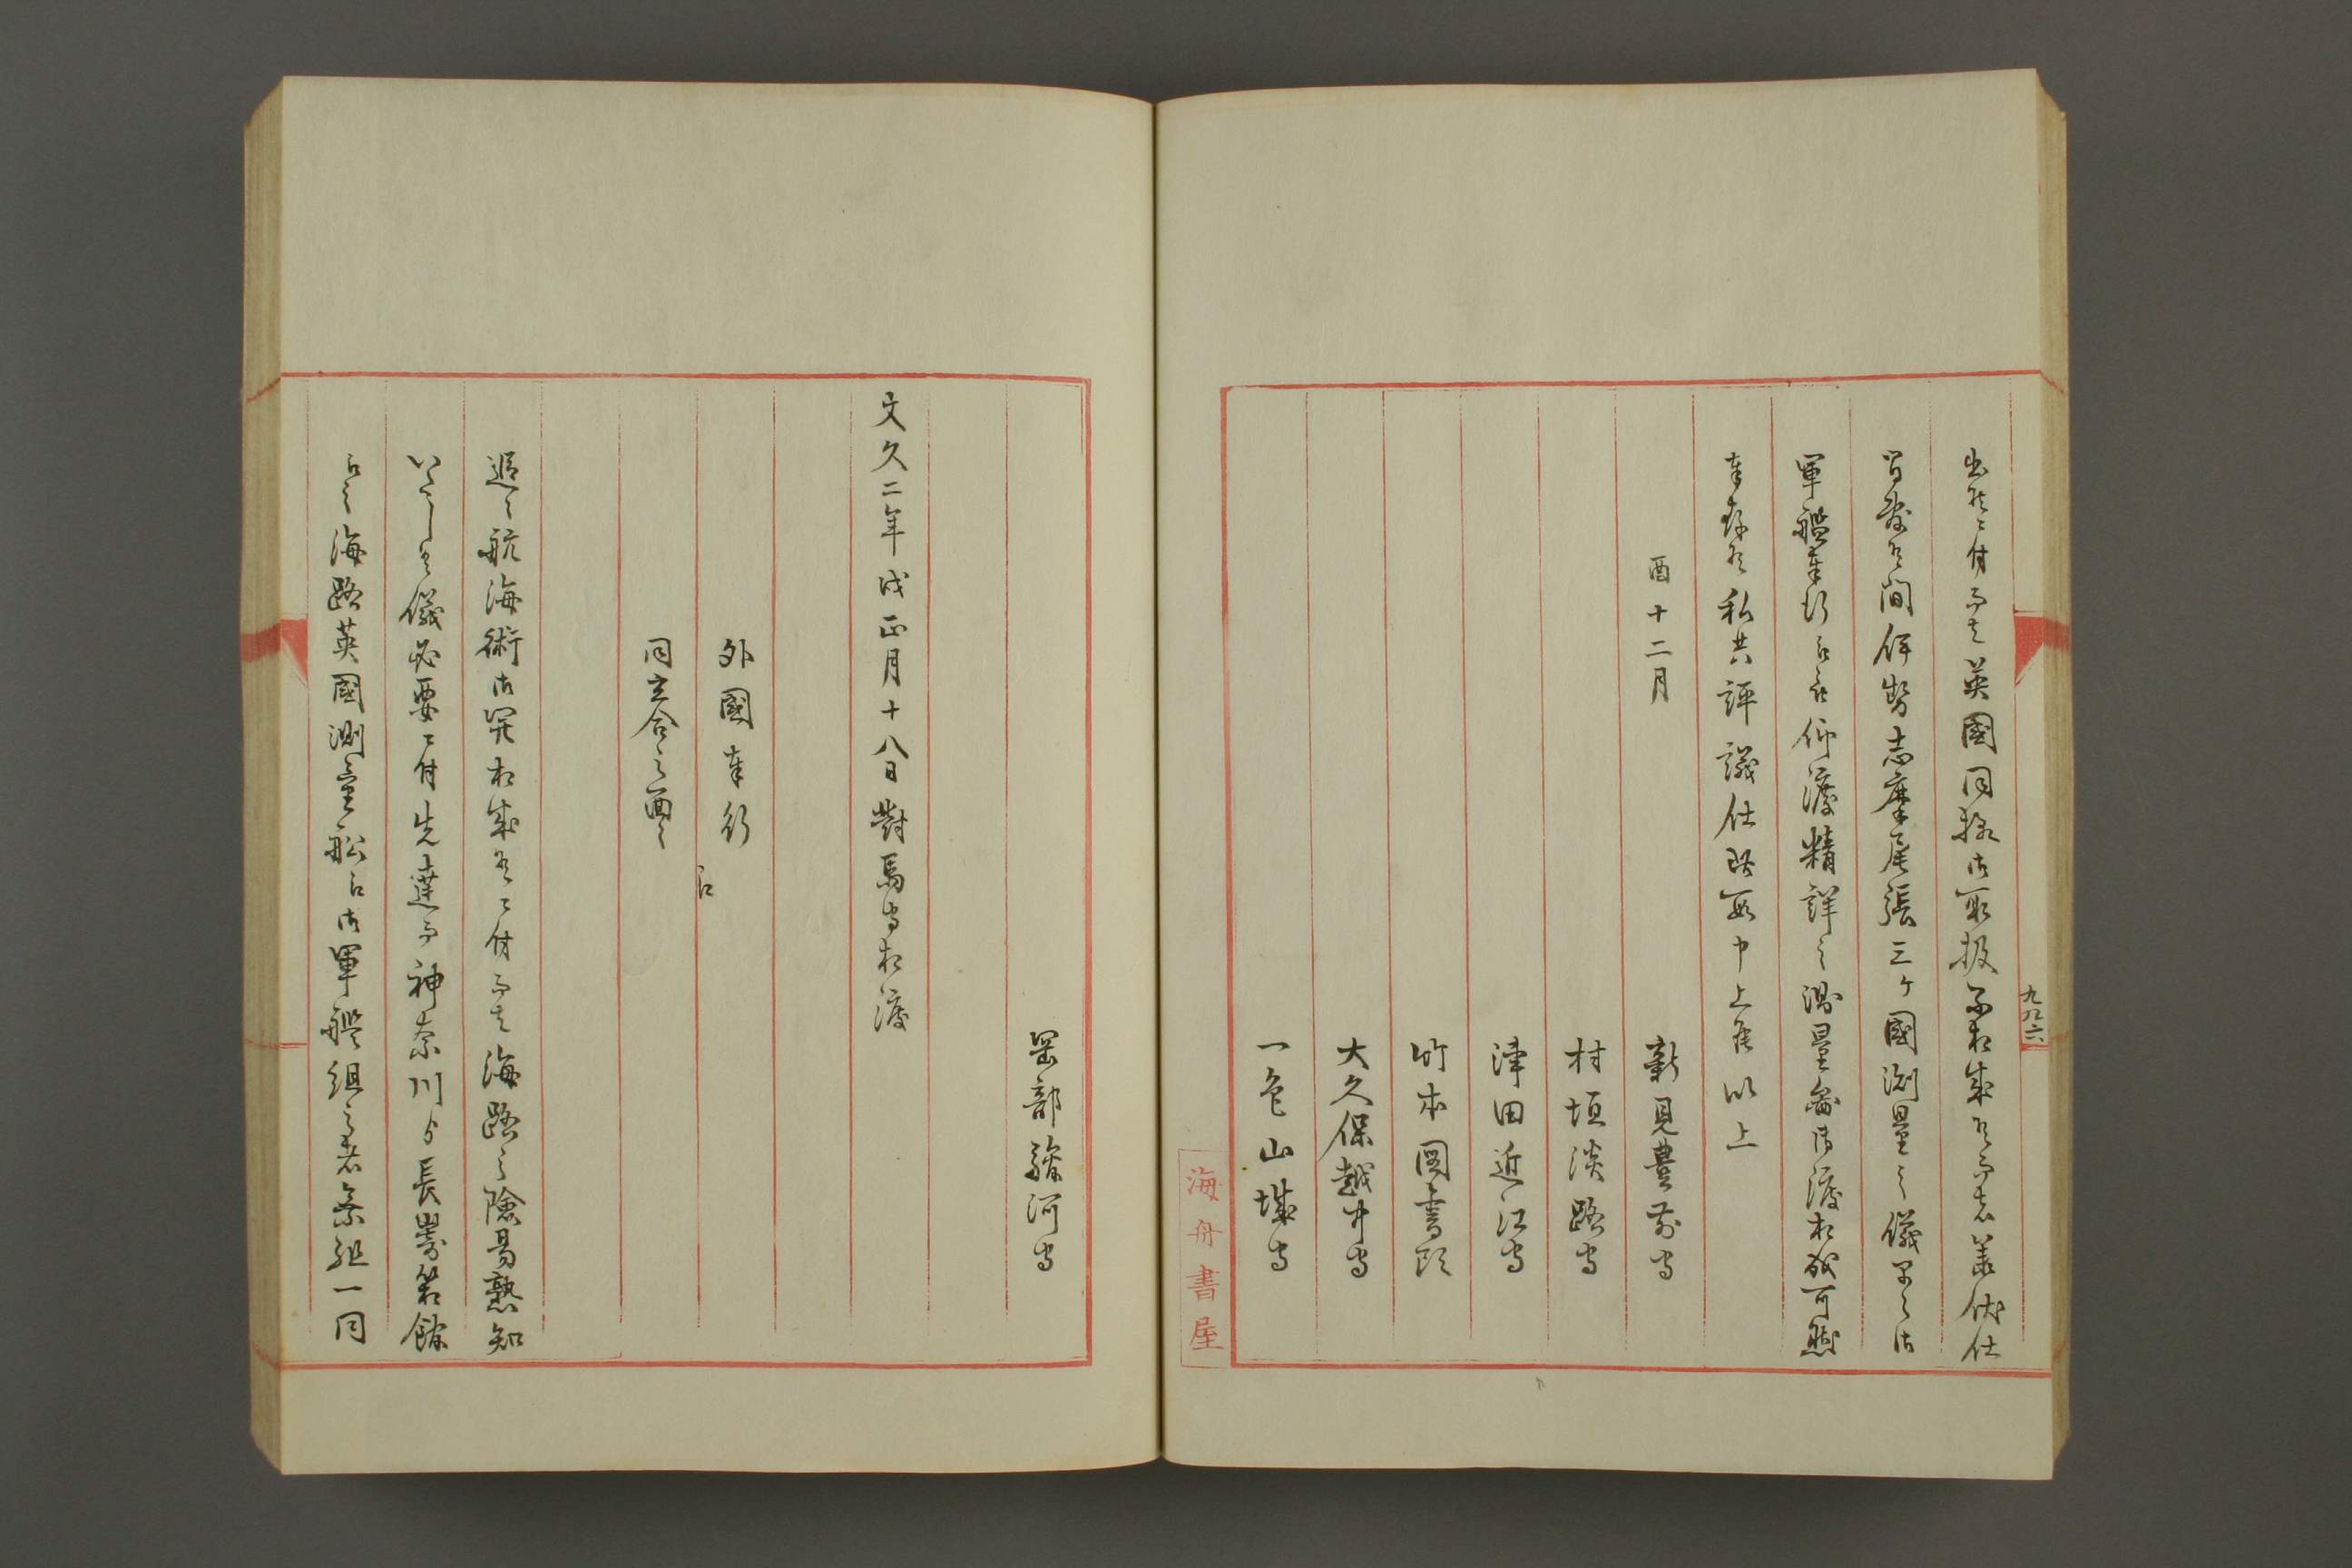 出行ニ付而者英國同様御取扱不相成候而者差伏仕
間敷候間伊勢志摩尾張三ヶ國測量之儀早々御
軍艦奉行江被仰渡精詳之測量無御渡相成可然
奉存候私共評議仕此段申上候以上
酉十二月
新見豊前守
村垣淡路守
津田近江守
竹本図書頭
大久保越中守
一色山城守
九百六
海舟書屋
岡部駿河守
文久二年戌正月十八日對馬守相渡
外國奉行
江
同立合之面々
追々航海術御開相成候ニ付而者海路之險易熟知
いたし候儀必要ニ付先達而神奈川ゟ長嵜箱館
江之海路英國測量船江御軍艦組之者乗組一同